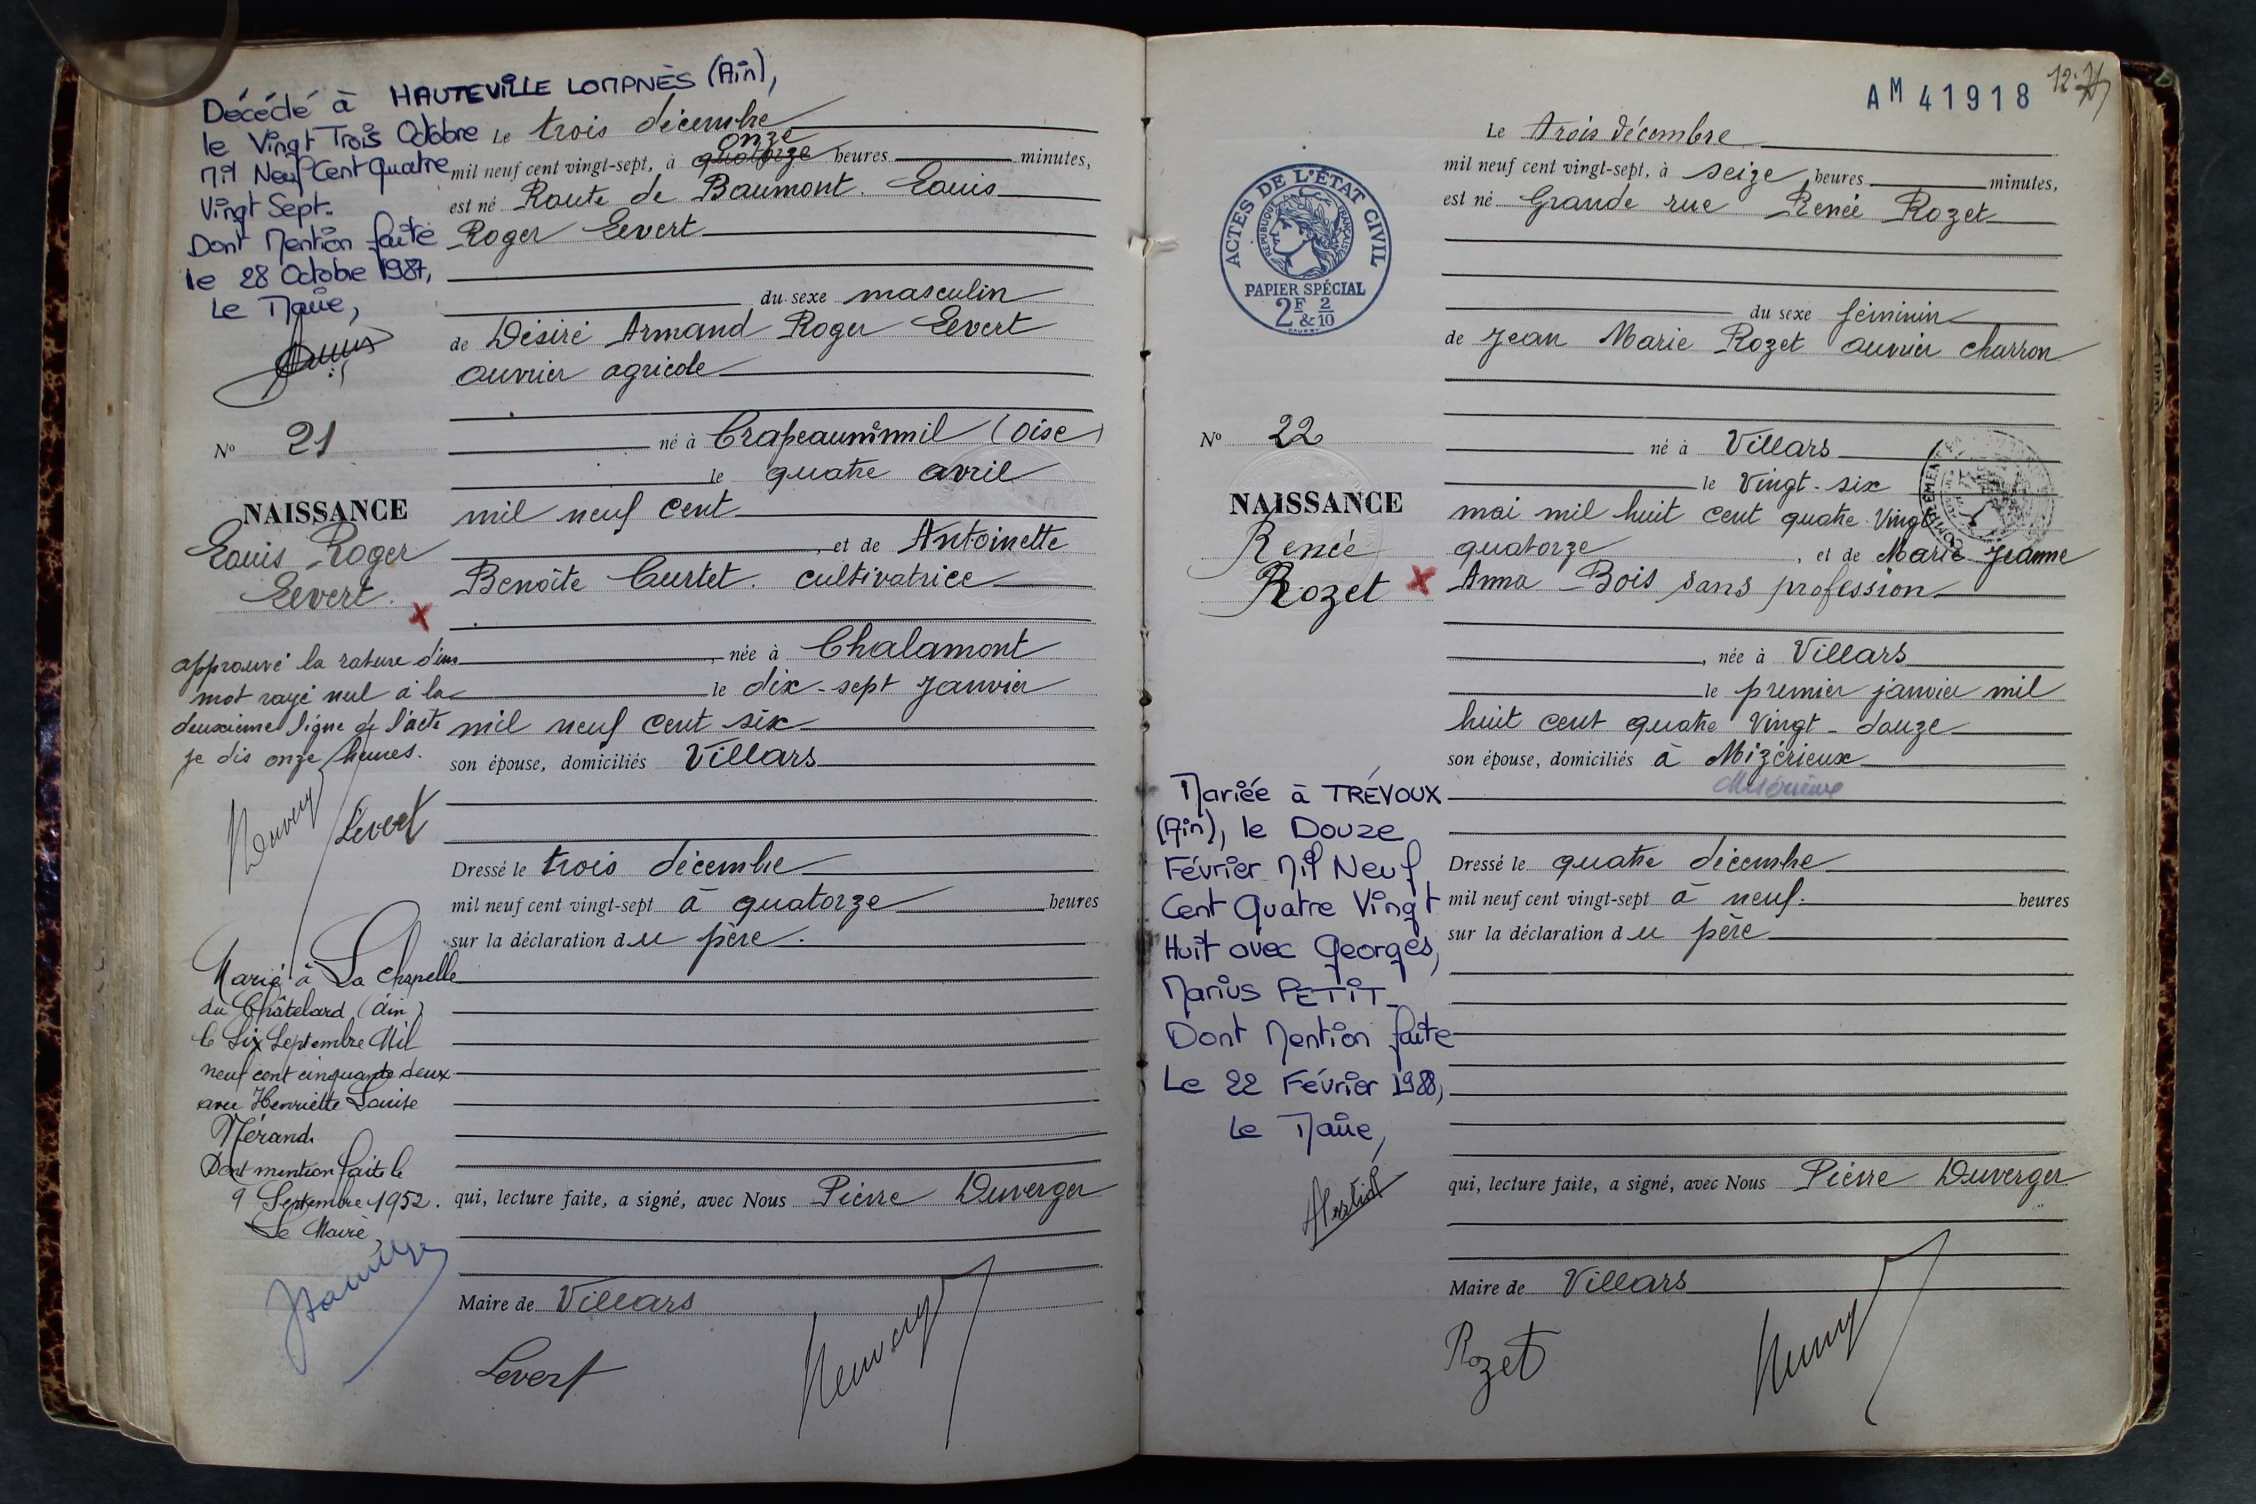 Décédé à HAUTEVILLE LOMPNÈS (Ain),
le Vingt Trois Octobre
Mil Neuf Cent Quatre
Vingt Sept.
Dont Mention faite
le 28 Octobre 1987,
Le Maire,
Nº 21
NAISSANCE
Louis Roger
Levert.
approuvé la rature d'un
mot rayé nul à la
deuxième ligne de l'acte
je dis onze heures.
Levert
Marié à La Chapelle
du Châtelard (Ain)
le Six Septembre Mil
neuf cent cinquante deux
avec Henriette Louise
Mérand.
Dont mention faite le
9 Septembre 1952.
Le Maire
Le trois décembre
onze
mil neuf cent vingt-sept, à quatorze heures minutes,
est né Route de Baumont. Louis
Roger Levert
du sexe masculin
de Désiré Armand Roger Levert
ouvrier agricole
né à Crapeaumnil (Oise)
le quatre avril
mil neuf cent
, et de Antoinette
Benoîte Curtet. cultivatrice
, née à Chalamont
le dix-sept Janvier
mil neuf cent six
son épouse, domiciliés Villars
Dressé le trois décembre
mil neuf cent vingt-sept à quatorze heures
sur la déclaration du père.
qui, lecture faite, a signé, avec Nous Pierre Duverger
Maire de Villars
Levert
AM 41918
ACTES DE L'ÉTAT CIVIL
RÉPUBLIQUE FRANÇAISE
PAPIER SPÉCIAL
2F & 2/10
Nº 22
NAISSANCE
Renée
Rozet
Mariée à TRÉVOUX
(Ain), le Douze
Février Mil Neuf
Cent Quatre Vingt
Huit avec Georges,
Marius PETIT.
Dont Mention faite
Le 22 Février 1988,
Le Maire,
Le trois décembre
mil neuf cent vingt-sept, à seize heures minutes,
est né Grande rue Renée Rozet
du sexe féminin
de Jean Marie Rozet ouvrier charron
né à Villars
le vingt-six
mai mil huit cent quatre vingt
quatorze , et de Marie Jeanne
Anna Bois sans profession
, née à Villars
le premier janvier mil
huit cent quatre vingt-douze
son épouse, domiciliés à Mizérieux
Misérieux
Dressé le quatre décembre
mil neuf cent vingt-sept à neuf. heures
sur la déclaration du père
qui, lecture faite, a signé, avec Nous Pierre Duverger
Maire de Villars
Rozet